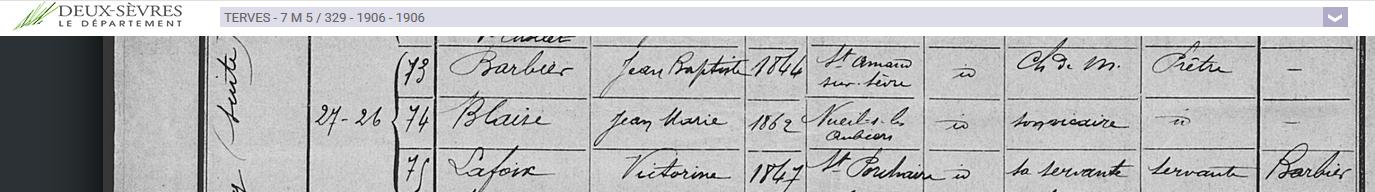 DEUX-SÈVRES
LE DÉPARTEMENT
TERVES - 7 M 5 / 329 - 1906 - 1906
(suite)
27-26
73 Barbier Jean Baptiste 1844 St Amand sur-Sèvre id Ch de m. Prêtre —
74 Blaise Jean Marie 1862 Nueil-s-les Aubiers id son vicaire id —
75 Lafoix Victorine 1847 St Porchaire id sa servante servante Barbier